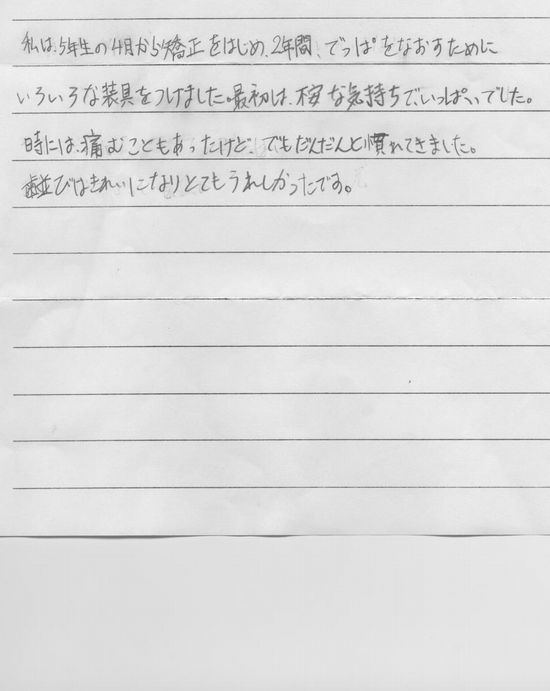 私は、5年生の4月から矯正をはじめ、2年間、でっぱをなおすために
いろいろな装具をつけました。最初は、不安な気持ちで、いっぱいでした。
時には、痛むこともあったけど、でもだんだんと慣れてきました。
歯並びはきれいになりとてもうれしかったです。